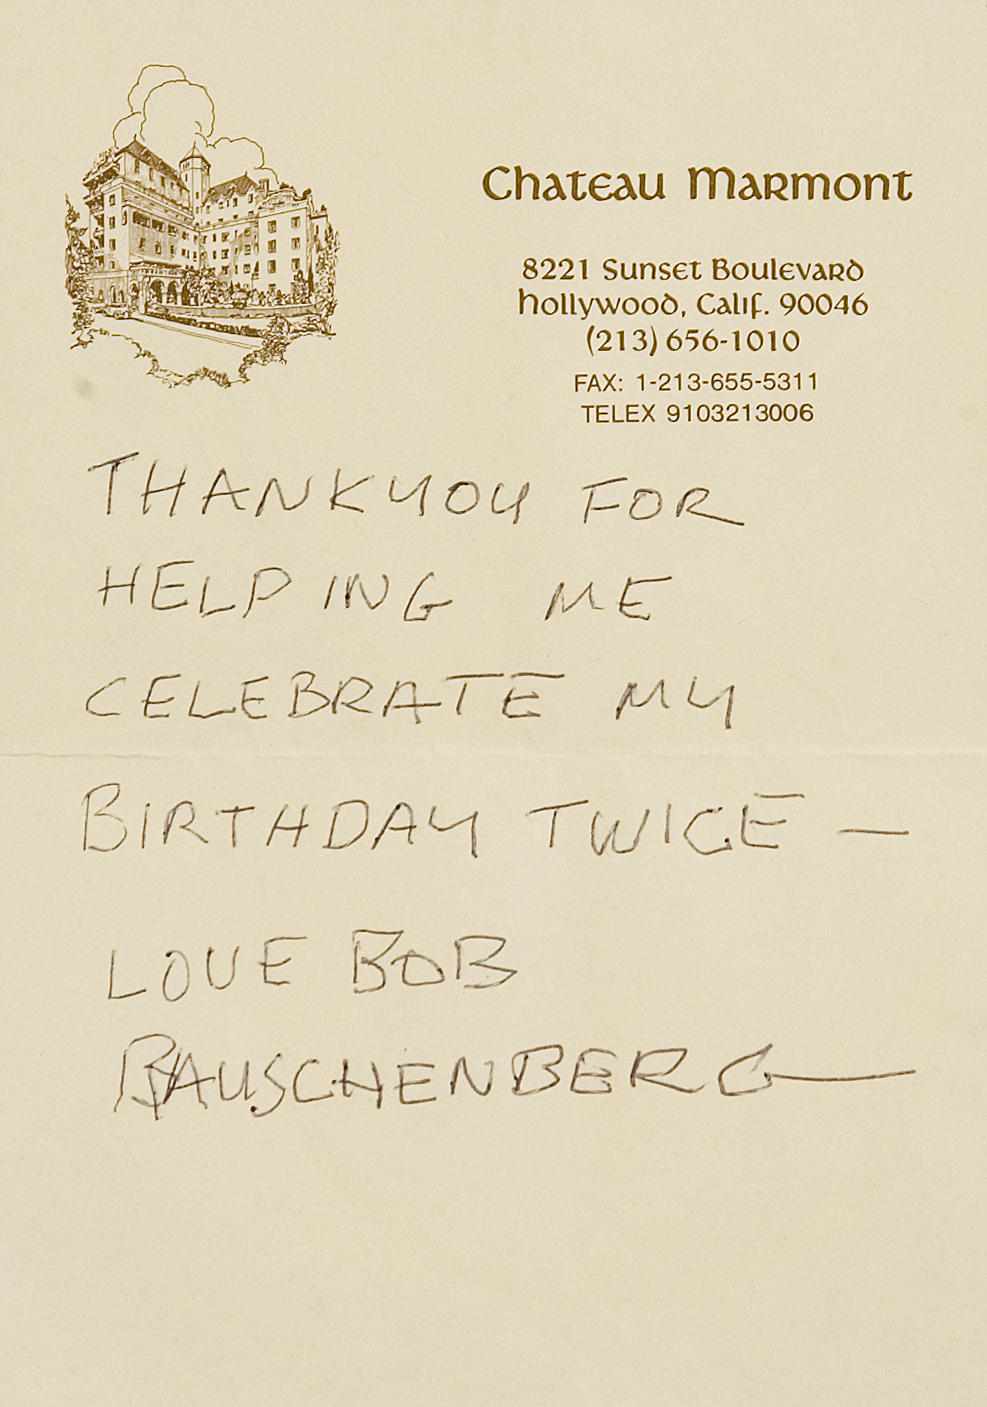 Chateau Marmont
8221 Sunset Boulevard
Hollywood, Calif. 90046
(213) 656-1010
FAX: 1-213-655-5311
TELEX 9103213006
THANKYOU FOR
HELPING ME
CELEBRATE MY
BIRTHDAY TWICE —
LOVE BOB
RAUSCHENBERG